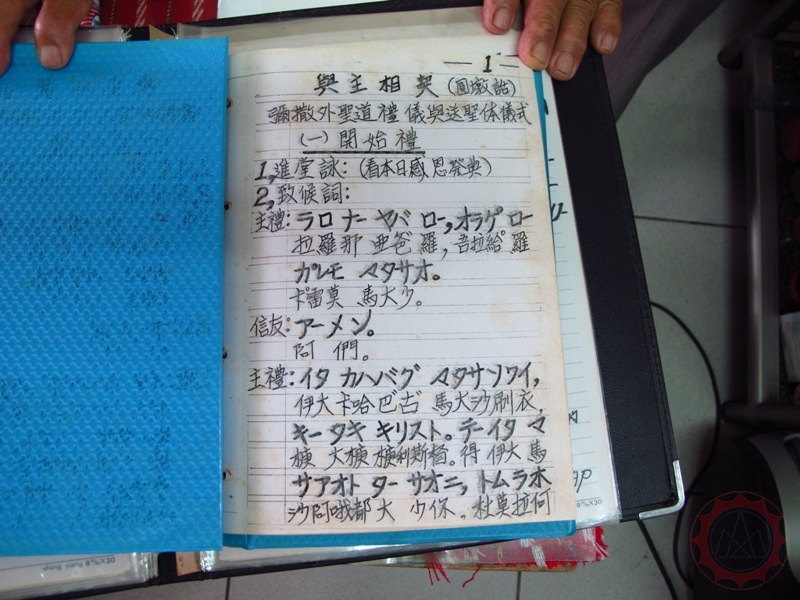 — 1 —
與主相契(圓墩語)
彌撒外聖道禮儀與送聖体儀式
(一)開始禮
1,進堂詠:(看本日感恩祭典)
2,致候詞:
主禮:ラロ ナー ヤバ ロー,オラゲ ロー
拉羅那 亜爸 羅,吾拉給 羅
カレモ マタサオ。
卡雷莫 馬大少。
信友:アーメン。
阿 們。
主禮:イタ カハバグ マタサソワイ,
伊大卡哈巴古 馬大沙刷衣,
キー タキ キリスト。テー イタ マ
大 利斯督。得 伊大 馬
サアオト ター サオニ,トムラホ
沙阿哦都大 少你,杜莫拉何
shing yang 8½X30